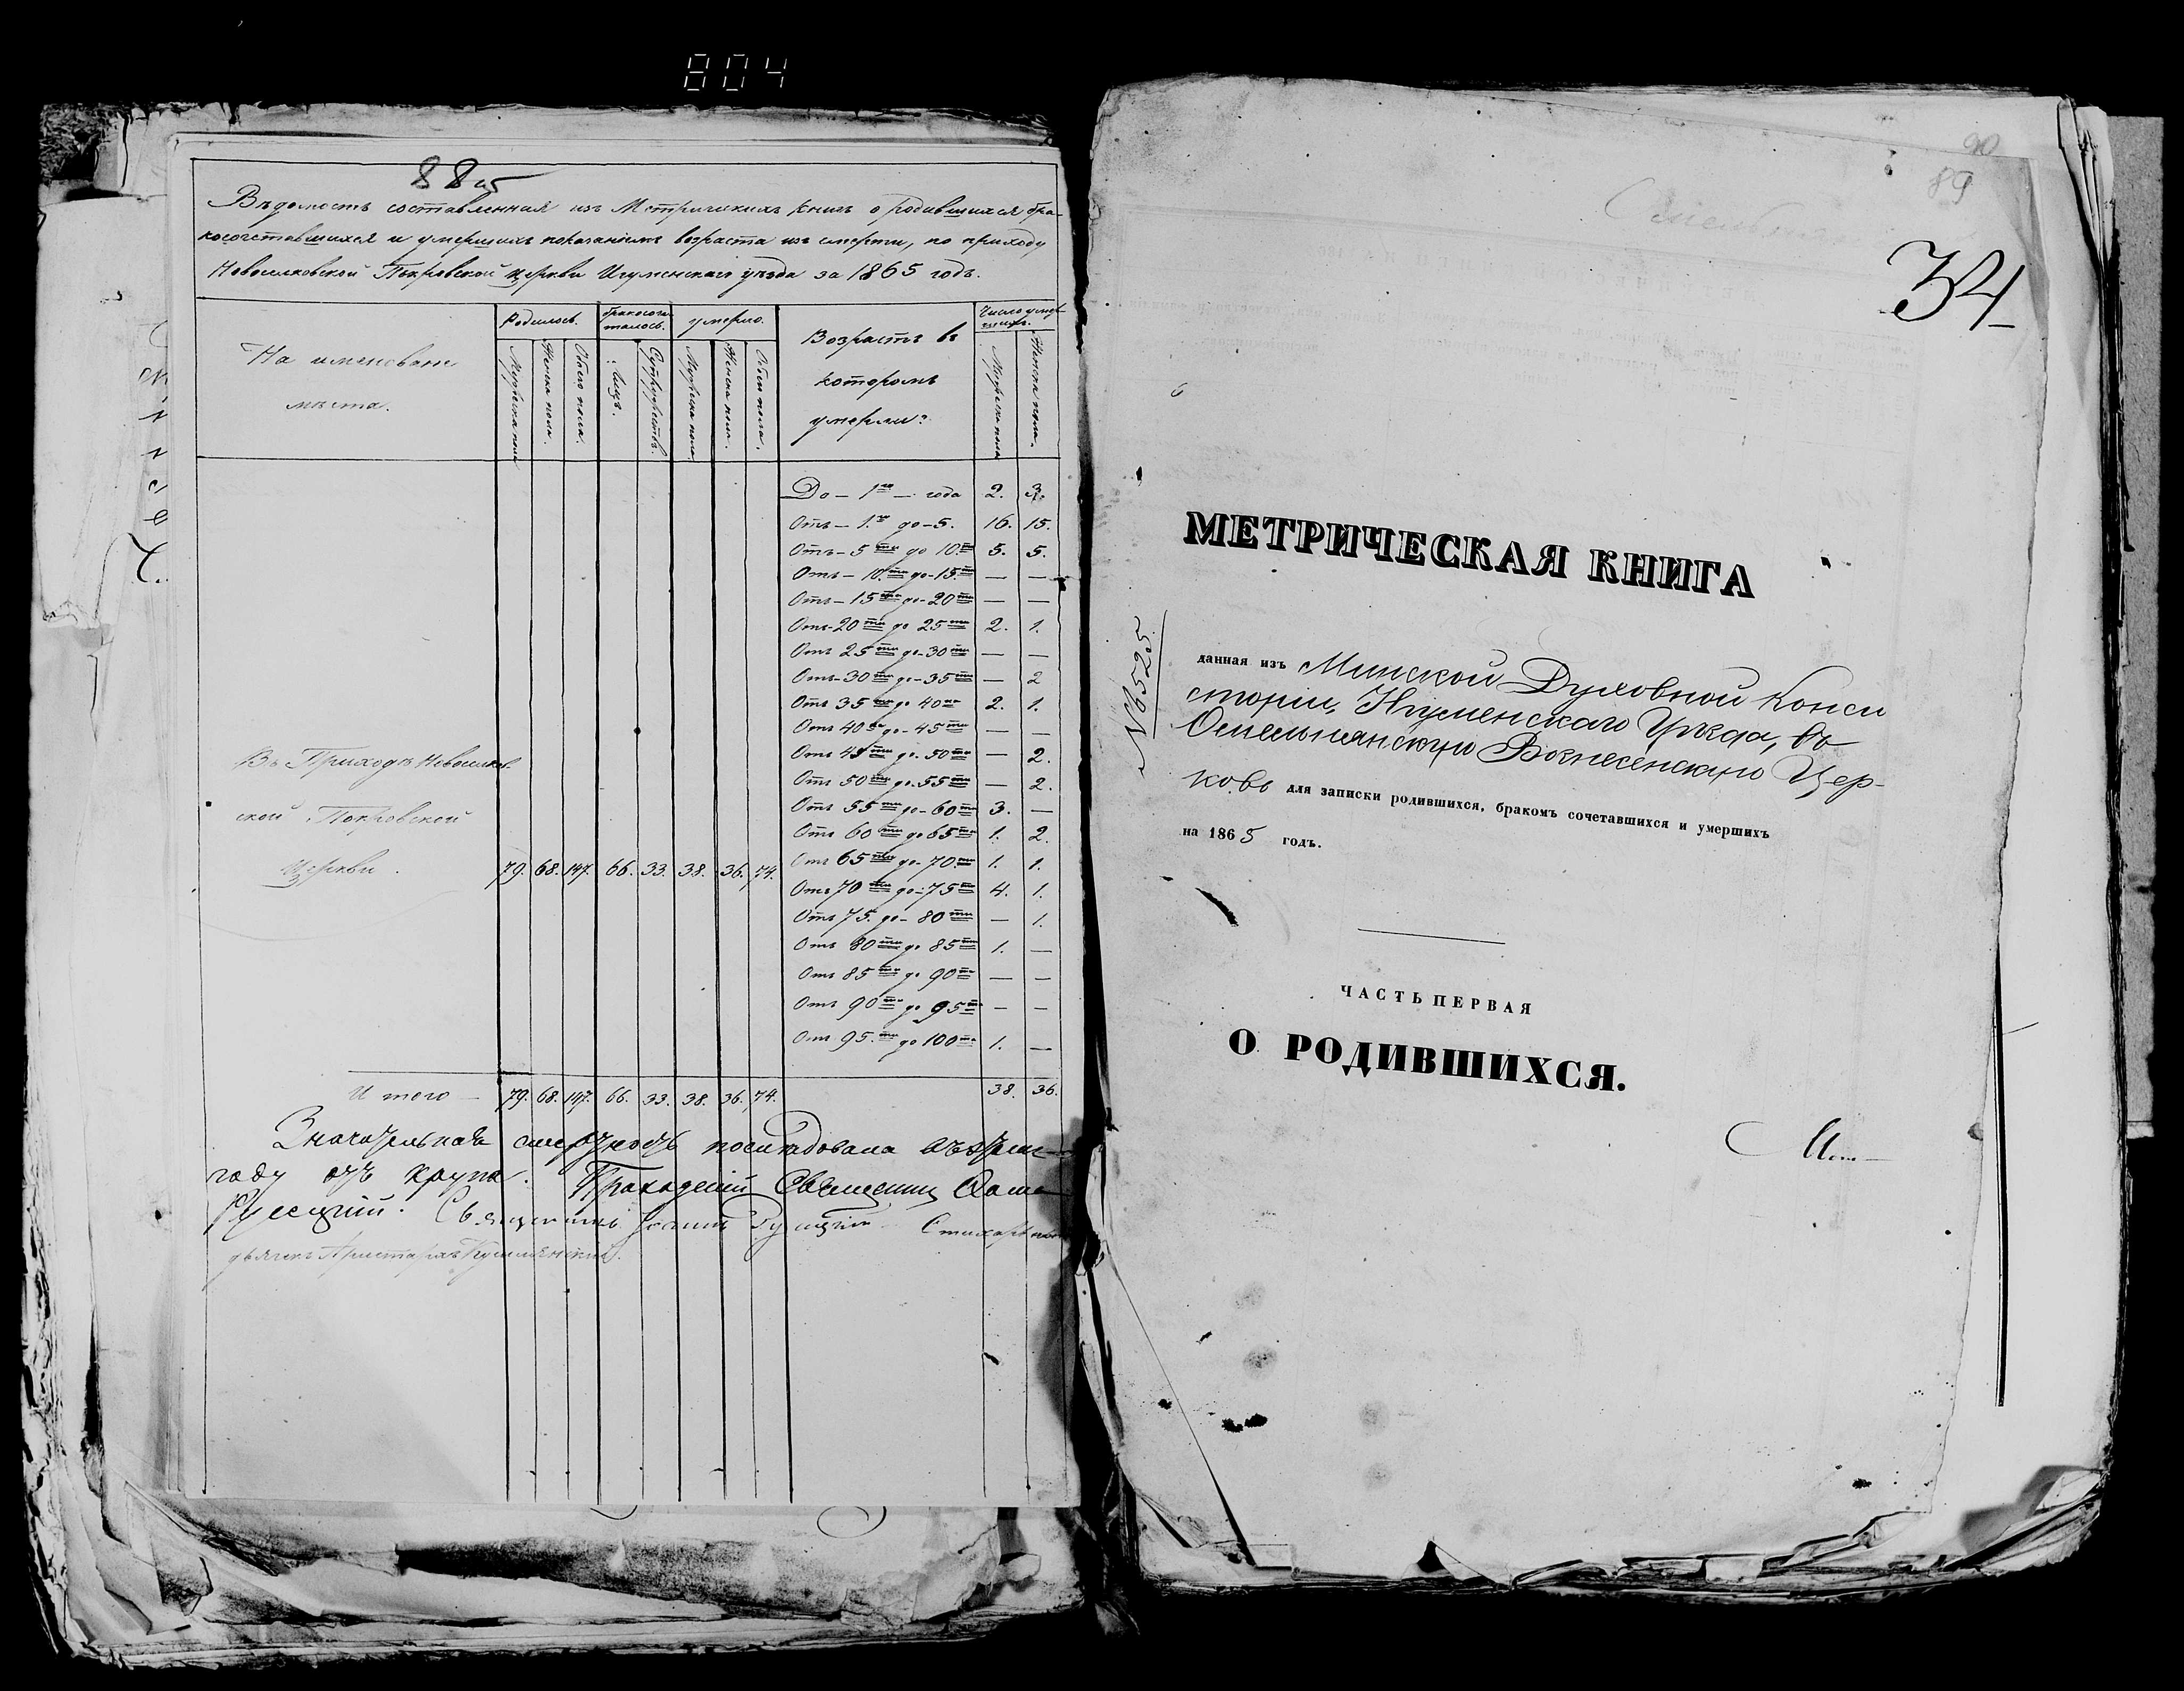 804
88 об
Вѣдомость составленная изъ Метрическихъ книгъ о родившихся бра-
косочетавшихся и умершихъ показаніемъ возраста ихъ смерти, по приходу
Новоселковской Покровской церкви Игуменскаго уѣзда за 1865 годъ.
На именованіе
мѣста.
Родилось.
бракосоче-
талось.
умерло.
Возрастъ въ
которомъ
умерли?
Число умер-
шихъ.
Мужеска пола
Женска пола.
Обоего пола.
Лицъ.
Супружествъ.
Мужеска пола.
Женска пола.
Обоего пола.
Мужеска пола
Женска пола.
До – 1го – года 2. 3.
Отъ – 1.го до – 5. 16. 15.
Отъ – 5ти до 10.ти 5. 5.
Отъ – 10.ти до – 15ти — —
Отъ – 15ти до – 20ти — —
Отъ – 20ти до 25ти 2. 1.
Отъ 25ти до – 30ти — —
Отъ – 30ти до – 35ти — 2
Отъ 35ти до 40ка 2. 1.
Отъ 40ка до – 45ти — —
Отъ 45ти до – 50ти — 2.
Отъ 50ти до – 55ти — 2.
Отъ 55ти до – 60ти 3. —
Отъ 60ти до 65ти 1. 2.
Отъ 65ти до – 70.ти 1. 1.
Отъ 70ти до – 75ти 4. 1.
Отъ 75. до – 80ти — 1.
Отъ 80ти до 85ти 1. —
Отъ 85ти до 90то — —
Отъ 90то до 95ти — —
Отъ 95.ти до 100та 1. —
Въ Приходѣ Новоселков-
ской Покровской
Церкви. 79. 68. 147. 66. 33. 38. 36. 74.
И того – 79. 68. 147. 66. 33. 38. 36. 74. 38. 36.
Значательная смертность послѣдовала въ
году отъ крупа. Священникъ
Священникъ Іоаннъ
дьячекъ Аристархъ
90
89
34
МЕТРИЧЕСКАЯ КНИГА
№ 6525.
данная изъ Минской Духовной Конси
сторіи, Игуменскаго Уѣзда, въ
Омельнянскую Вознесенскую Цер-
ковь для записки родившихся, бракомъ сочетавшихся и умершихъ
на 1865 годъ.
ЧАСТЬ ПЕРВАЯ
О РОДИВШИХСЯ.